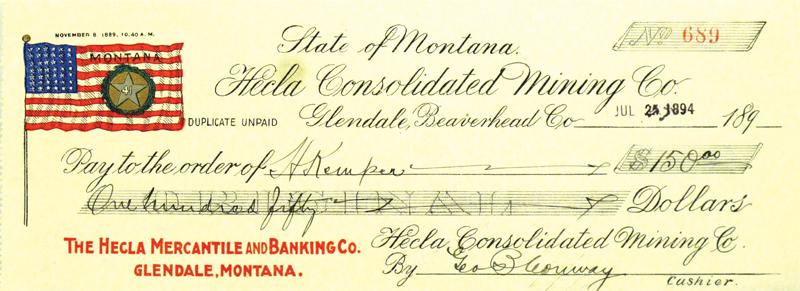 NOVEMBER 8, 1889, 10.40 A.M.
MONTANA
41
State of Montana.
No 689
Hecla Consolidated Mining Co.
DUPLICATE UNPAID
Glendale, Beaverhead Co JUL 25 1894 189
Pay to the order of A Kemper $150.00
One hundred fifty Dollars
ORIGINAL
THE HECLA MERCANTILE AND BANKING CO.
GLENDALE, MONTANA.
Hecla Consolidated Mining Co.
By Geo B Conway
Cashier.